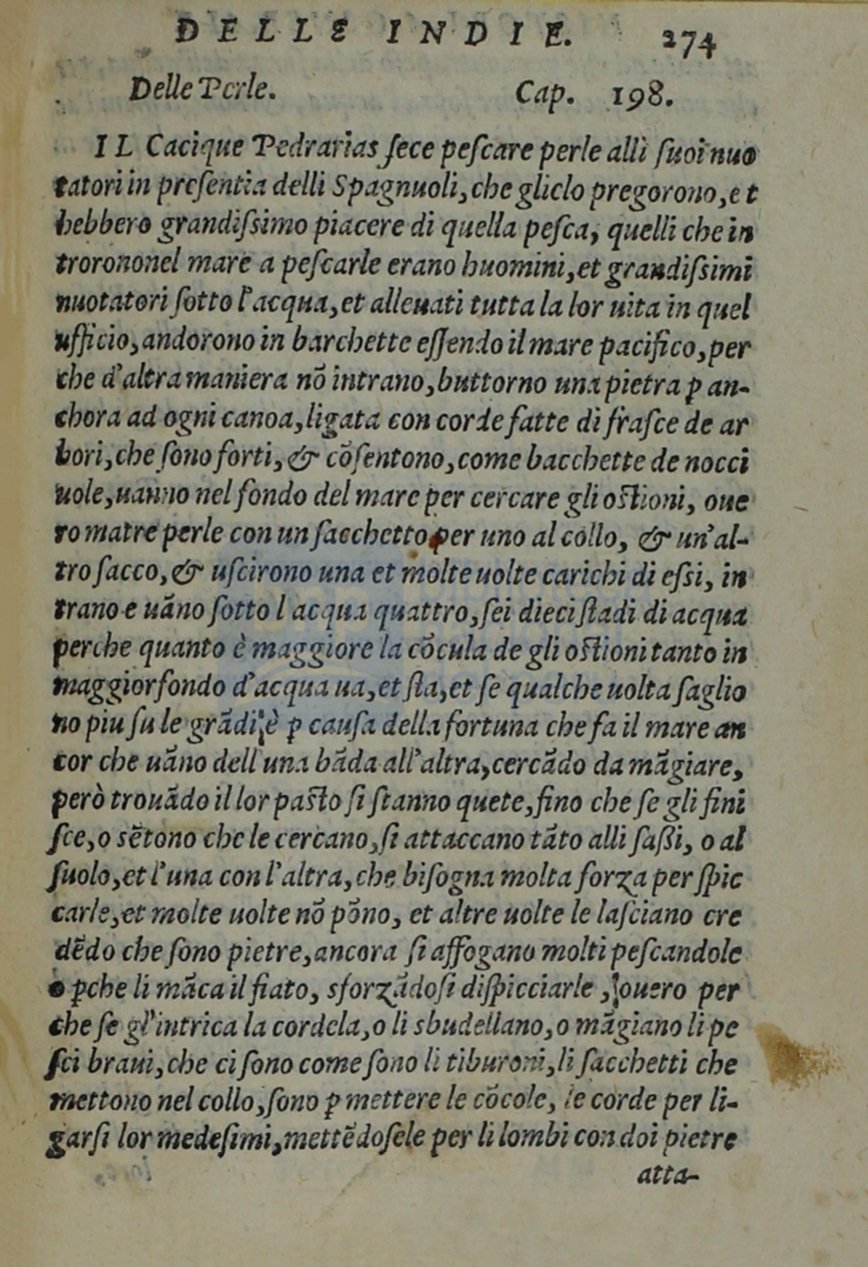 DELLE INDIE. 274
Delle Perle. Cap. 198.
IL Cacique Pedrarias fece peſcare perle alli ſuoi nuo
tatori in preſentia delli Spagnuoli, che gliclo pregorono, e t
hebbero grandiſsimo piacere di quella peſca, quelli che in
trorononel mare a peſcarle erano huomini, et grandiſsimi
nuotatori ſotto l'acqua, et alleuati tutta la lor uita in quel
ufficio, andorono in barchette eſſendo il mare pacifico, per
che d'altra maniera nō intrano, buttorno una pietra ꝑ an-
chora ad ogni canoa, ligata con corde fatte di fraſce de ar
bori, che ſono forti, & cōſentono, come bacchette de nocci
uole, uanno nel fondo del mare per cercare gli oſtioni, oue
ro matre perle con un ſacchetto per uno al collo, & un'al-
tro ſacco, & uſcirono una et molte uolte carichi di eſsi, in
trano e uāno ſotto l acqua quattro, ſei dieci ſtadi di acqua
perche quanto è maggiore la cōcula de gli oſtioni tanto in
maggior fondo d'acqua ua, et ſta, et ſe qualche uolta ſaglio
no piu ſu le grādi, è ꝑ cauſa della fortuna che fa il mare an
cor che uāno dell'una bāda all'altra, cercādo da māgiare,
però trouādo il lor paſto ſi ſtanno quete, fino che ſe gli fini
ſce, o sētono che le cercano, ſi attaccano tāto alli ſaſſi, o al
ſuolo, et l'una con l'altra, che biſogna molta forza per ſpic
carle, et molte uolte nō pōno, et altre uolte le laſciano cre
dēdo che ſono pietre, ancora ſi affogano molti peſcandole
o ꝑche li māca il fiato, sforzādoſi diſpicciarle, ouero per
che ſe gl'intrica la cordela, o li sbudellano, o māgiano li pe
ſci braui, che ci ſono come ſono li tiburoni, li ſacchetti che
mettono nel collo, ſono ꝑ mettere le cōcole, le corde per li-
garſi lor medeſimi, mettēdoſele per li lombi con doi pietre
atta-